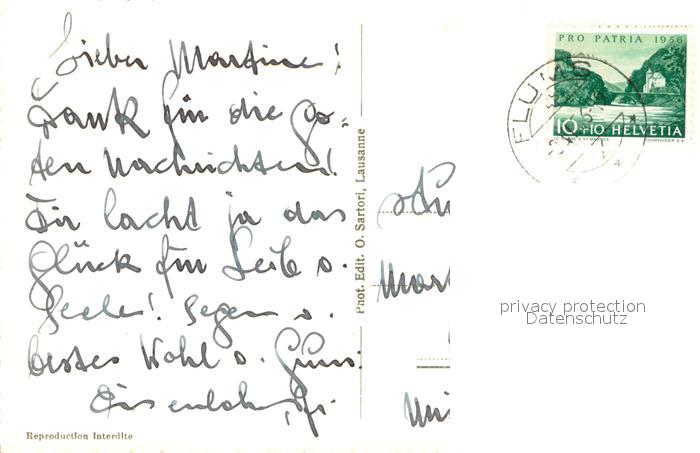 Lieber Martine!
Dank für die go-
ten Nachrichten!
Dir lacht ja das
Glück für Leib u.
Seele! Segen u.
bestes Wohl u. Gruss:
Phot. Edit. O. Sartori, Lausanne
Reproduction Interdite
PRO PATRIA 1956
10+10 HELVETIA
COURVOISIER S.A.
FLUMS
privacy protection
Datenschutz